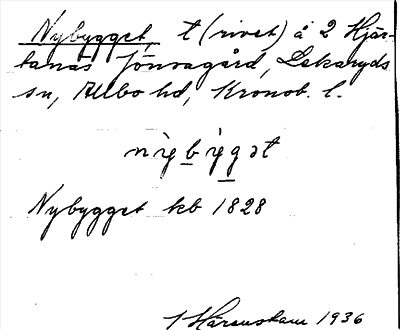 Nybygget, t (rivet) å 2 Hjär-
tanäs Jönsagård, Lekaryds
sn, Allbo hd, Kronob. l.
nỳbỳgət
Nybygget kb 1828
Härenstam 1936